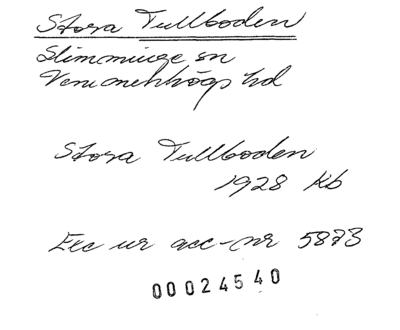 Stora Tullboden
Slimminge sn
Vemmenhögs hd
Stora Tullboden
1928 Kb
Exc ur acc-nr 5873
00024540